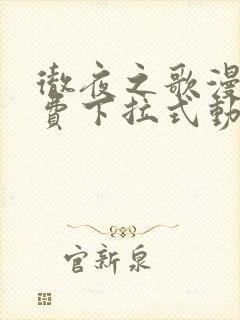 徹夜之歌漫
費下拉式動
官新泉